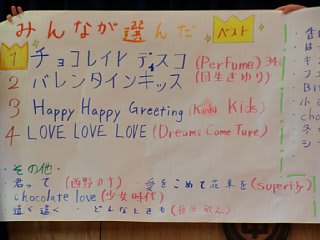 みんなが選んだ ベスト
1 チョコレイト ディスコ (Perfume) 34
2 バレンタインキッス (国生さゆり)
3 Happy Happy Greeting (Kinki Kids)
4 LOVE LOVE LOVE (Dreams Come Ture)
・その他・
・君って (西野カナ) 愛をこめて花束を (Superfly)
chocolate love (少女時代)
・遠く遠く ・どんなときも (槇原敬之)